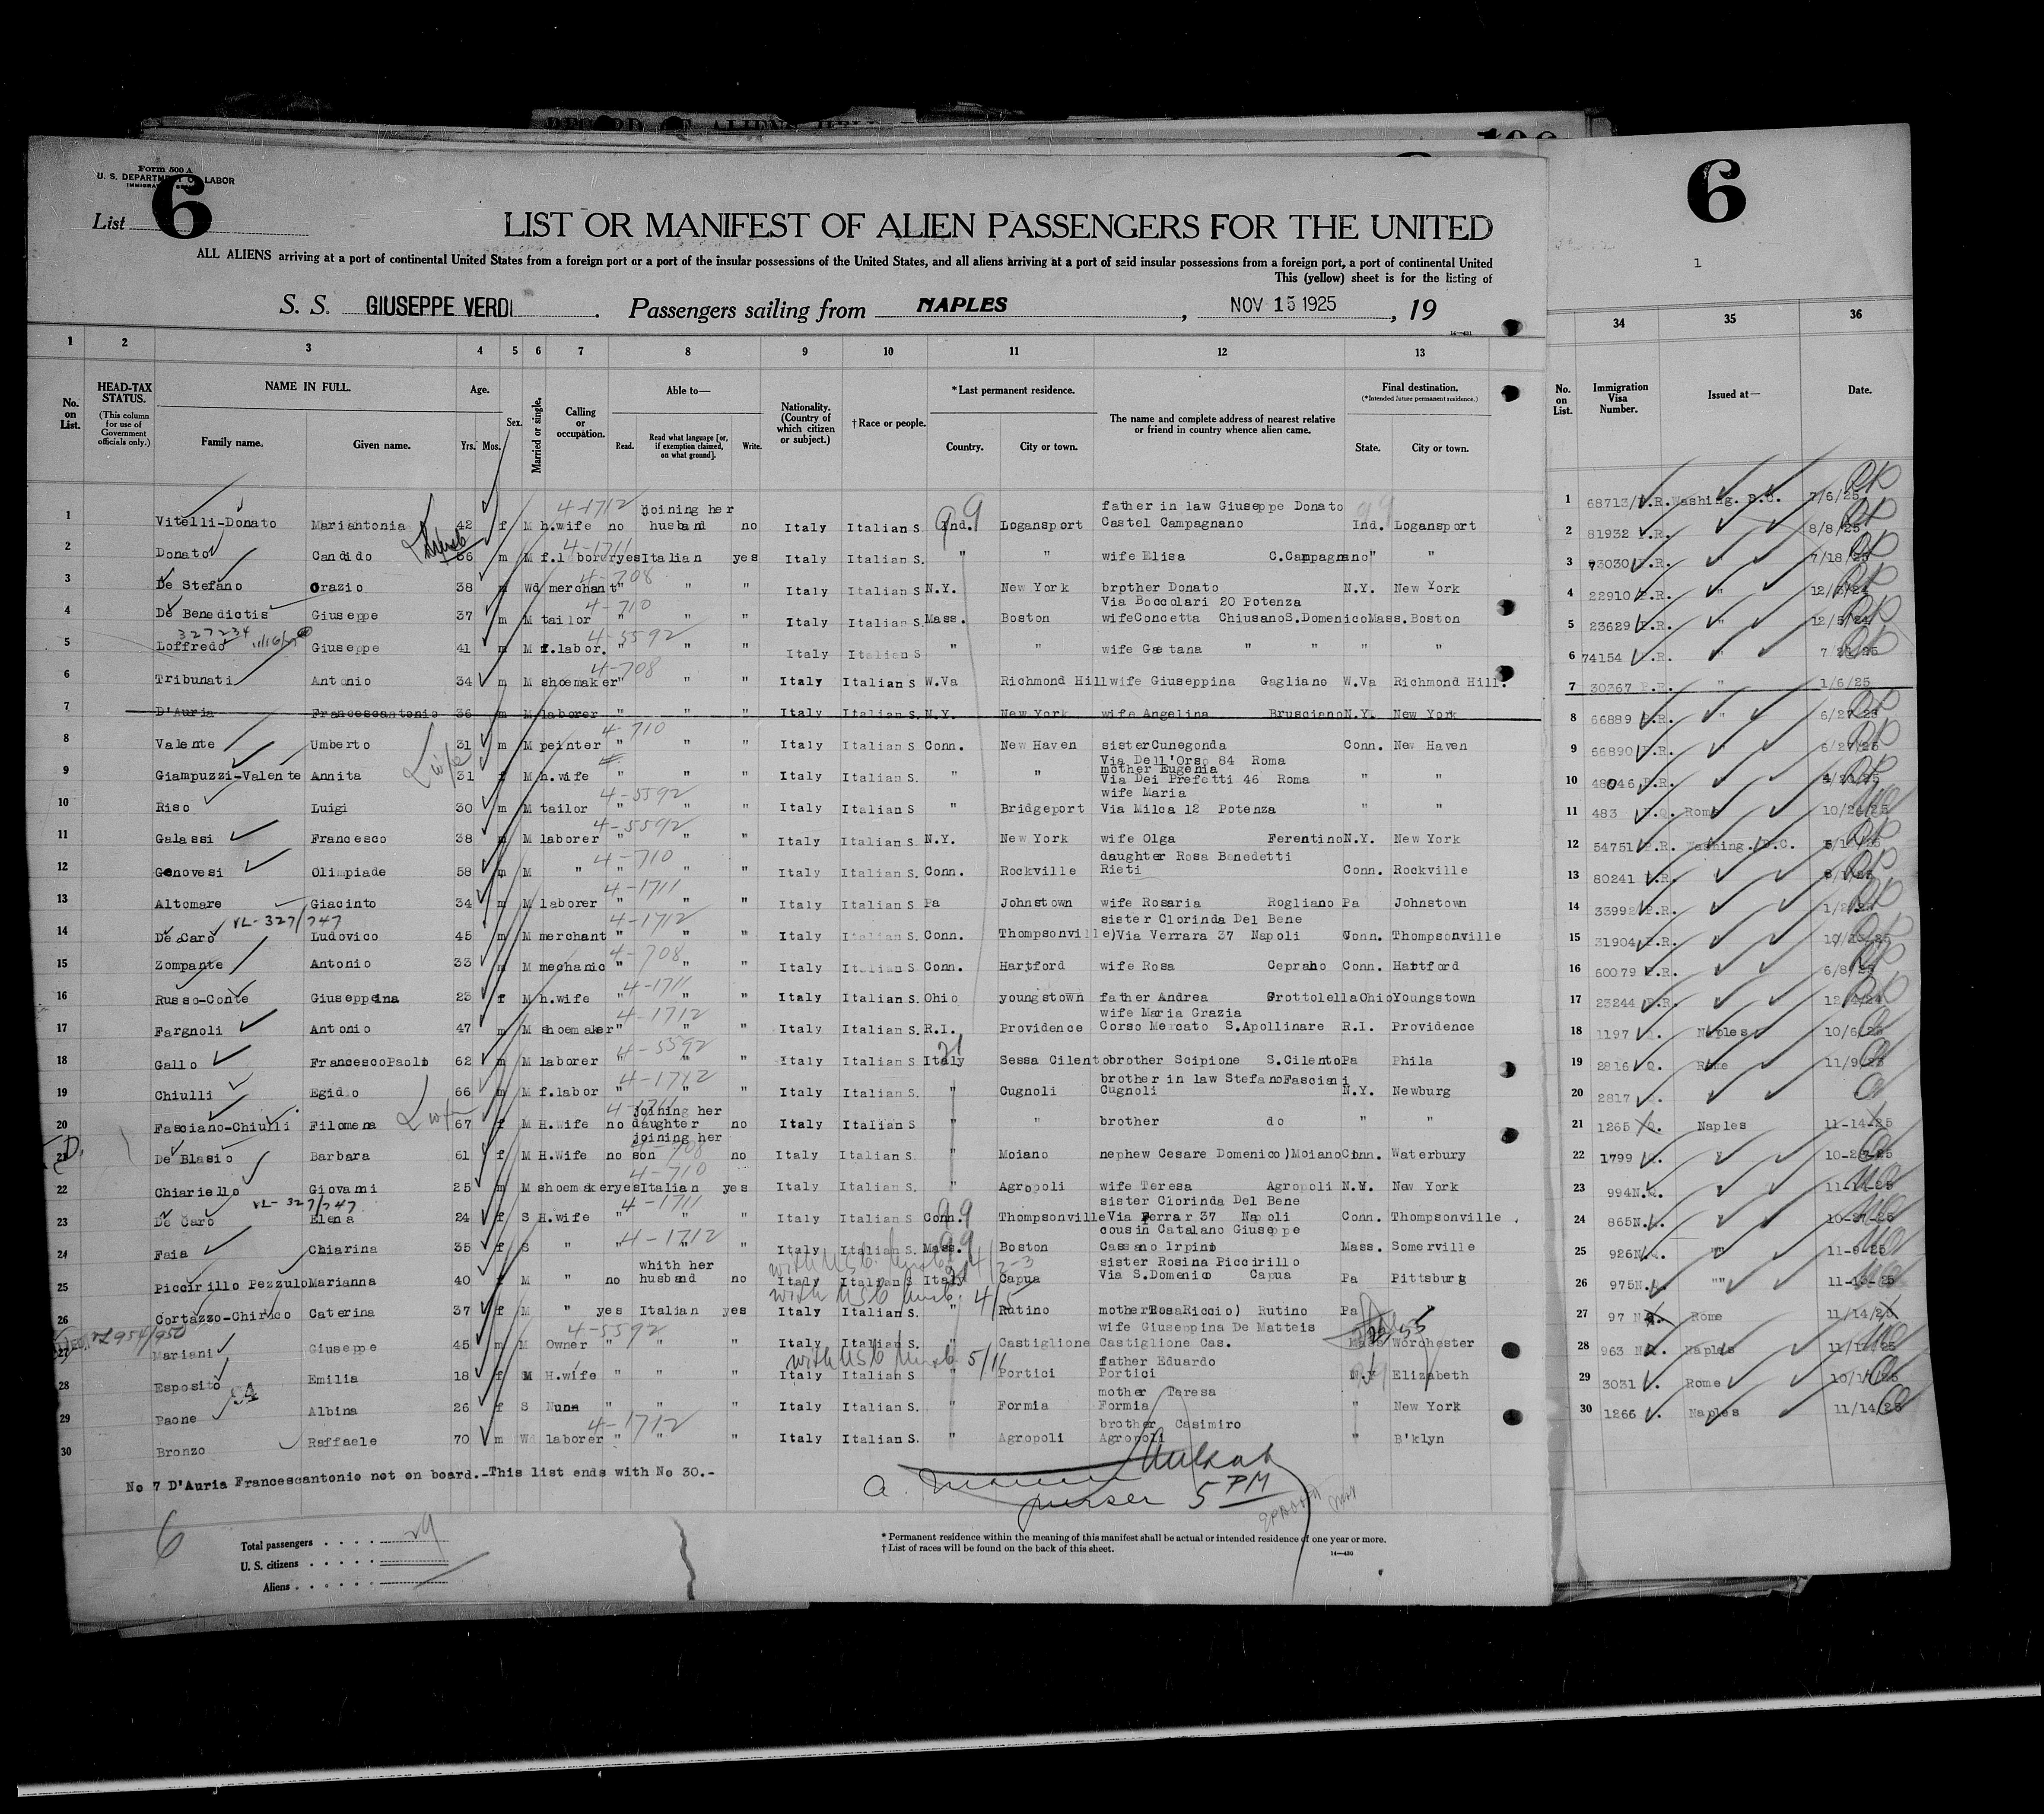 Form 500 A
U. S. DEPARTMENT OF LABOR
List 6
6
LIST OR MANIFEST OF ALIEN PASSENGERS FOR THE UNITED
ALL ALIENS arriving at a port of continental United States from a foreign port or a port of the insular possessions of the United States, and all aliens arriving at a port of said insular possessions from a foreign port, a port of continental United
This (yellow) sheet is for the listing of
1
S. S. GIUSEPPE VERDI. Passengers sailing from NAPLES, NOV 15 1925, 19
1 2 3 4 5 6 7 8 9 10 11 12 13 34 35 36
No. on List.
HEAD-TAX STATUS.
(This column for use of Government officials only.)
NAME IN FULL.
Family name. Given name.
Age.
Yrs. Mos.
Sex.
Married or single.
Calling or occupation.
Able to—
Read. Read what language [or, if exemption claimed, on what ground]. Write.
Nationality. (Country of which citizen or subject.)
† Race or people.
* Last permanent residence.
Country. City or town.
The name and complete address of nearest relative or friend in country whence alien came.
Final destination.
(*Intended future permanent residence.)
State. City or town.
No. on List.
Immigration Visa Number.
Issued at—
Date.
1 Vitelli-Donato Mariantonia 42 f M h.wife no joining her husband no Italy Italian S Ind. Logansport father in law Giuseppe Donato Castel Campagnano Ind. Logansport
2 Donato Candido m M yes Italian yes Italy Italian S. " " wife Elisa C.Campagnano " "
3 De Stefano Orazio 38 m Wd merchant " " " Italy Italian S N.Y. New York brother Donato Via Boccolari 20 Potenza N.Y. New York
4 De Benedictis Giuseppe 37 m M tailor " " " Italy Italian S. Mass. Boston wife Concetta Chiusano S.Domenico Mass. Boston
5 Loffredo Giuseppe 41 m M f.labor. " " " Italy Italian S " " wife Gaetana " " " "
6 Tribunati Antonio 34 m M shoemaker " " " Italy Italian S W.Va Richmond Hill wife Giuseppina Gagliano W.Va Richmond Hill.
7 D'Auria Francescantonio 36 m M laborer " " " Italy Italian S. N.Y. New York wife Angelina Brusciano N.Y. New York
8 Valente Umberto 31 m M peinter " " " Italy Italian S Conn. New Haven sister Cunegonda Via Dell'Orso 84 Roma Conn. New Haven
9 Giampuzzi-Valente Annita 31 f M h.wife " " " Italy Italian S. " " mother Eugenia Via Dei Prefetti 46 Roma " "
10 Riso Luigi 30 m M tailor " " " Italy Italian S " Bridgeport wife Maria Via Milca 12 Potenza " "
11 Galassi Francesco 38 m M laborer " " " Italy Italian S. N.Y. New York wife Olga Ferentino N.Y. New York
12 Genovesi Olimpiade 58 m M " " " " Italy Italian S. Conn. Rockville daughter Rosa Benedetti Rieti Conn. Rockville
13 Altomare Giacinto 34 m M laborer " " " Italy Italian S Pa Johnstown wife Rosaria Rogliano Pa Johnstown
14 De Caro Ludovico 45 m M merchant " " " Italy Italian S. Conn. Thompsonville) sister Clorinda Del Bene Via Verrara 37 Napoli Conn. Thompsonville
15 Zompante Antonio 33 m M mechanic " " " Italy Italian S Conn. Hartford wife Rosa Ceprano Conn. Hartford
16 Russo-Conte Giuseppina 23 f M h.wife " " " Italy Italian S. Ohio youngstown father Andrea Grottolella Ohio Youngstown
17 Fargnoli Antonio 47 m M shoemaker " " " Italy Italian S. R.I. Providence wife Maria Grazia Corso Mercato S.Apollinare R.I. Providence
18 Gallo Francesco Paolo 62 m M laborer " " " Italy Italian S Italy Sessa Cilento brother Scipione S.Cilento Pa Phila
19 Chiulli Egidio 66 m M f.labor " " " Italy Italian S. " Cugnoli brother in law Stefano Fasciani Cugnoli N.Y. Newburg
20 Fasciano-Chiulli Filomena 67 f M H.Wife no joining her daughter no Italy Italian S " " brother do " "
21 De Blasio Barbara 61 f M H.Wife no joining her son no Italy Italian S. " Moiano nephew Cesare Domenico) Moiano Conn. Waterbury
22 Chiariello Giovanni 25 m M shoemaker yes Italian yes Italy Italian S. " Agropoli wife Teresa Agropoli N.Y. New York
23 De Caro Elena 24 f S H.wife " " " Italy Italian S Conn. Thompsonville sister Clorinda Del Bene Via Ferrar 37 Napoli Conn. Thompsonville
24 Faia Chiarina 35 f S " " " " Italy Italian S. Mass. Boston cousin Catalano Giuseppe Cassano Irpino Mass. Somerville
25 Piccirillo Pezzulo Marianna 40 f M " no whith her husband no Italy Italian S Italy Capua sister Rosina Piccirillo Via S.Domenico Capua Pa Pittsburg
26 Cortazzo-Chirico Caterina 37 f M " yes Italian yes Italy Italian S. " Rutino mother Rosa Riccio) Rutino Pa "
27 Mariani Giuseppe 45 m M Owner " " " Italy Italian S. " Castiglione wife Giuseppina De Matteis Castiglione Cas. Mass Worchester
28 Esposito Emilia 18 f M H.wife " " " Italy Italian S " Portici father Eduardo Portici Elizabeth
29 Paone Albina 26 f S Nuna " " " Italy Italian S. " Formia mother Taresa Formia " New York
30 Bronzo Raffaele 70 m Wd laborer " " " Italy Italian S. " Agropoli brother Casimiro Agropoli " B'klyn
No 7 D'Auria Francescantonio not on board.-This list ends with No 30.-
purser 5 PM
6
Total passengers 29
U. S. citizens
Aliens
* Permanent residence within the meaning of this manifest shall be actual or intended residence of one year or more.
† List of races will be found on the back of this sheet.
14—430
1 68713/P.R. Washing. D.C. 7/6/25
2 81932 P.R. 8/8/25
3 73030 P.R. 7/18/25
4 22910 P.R. "
5 23629 P.R. " 12/5/24
6 74154 P.R. "
7 30367 P.R. " 1/6/25
8 66889 P.R. " 6/27/25
9 66890 P.R. 6/27/25
10 48046 P.R.
11 483 Rome
12 54751 P.R. Washing. D.C.
13 80241 P.R.
14 33992 P.R.
15 31904 P.R.
16 60079 P.R. 6/8/25
17 23244 P.R.
18 1197 Naples 10/6/25
19 2816 Q. Rome 11/9/25
20 2817
21 1265 Q. Naples 11-14-25
22 1799 "
23 994 N.Q. 11-14-25
24 865 N. " 10-27-25
25 926 N. "" 11-9-25
26 975 N. ""
27 97 N Rome 11/14/25
28 963 Naples
29 3031 Rome
30 1266 Naples 11/14/25